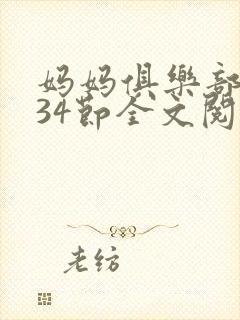 妈妈俱樂部
34節全文閱
老紡